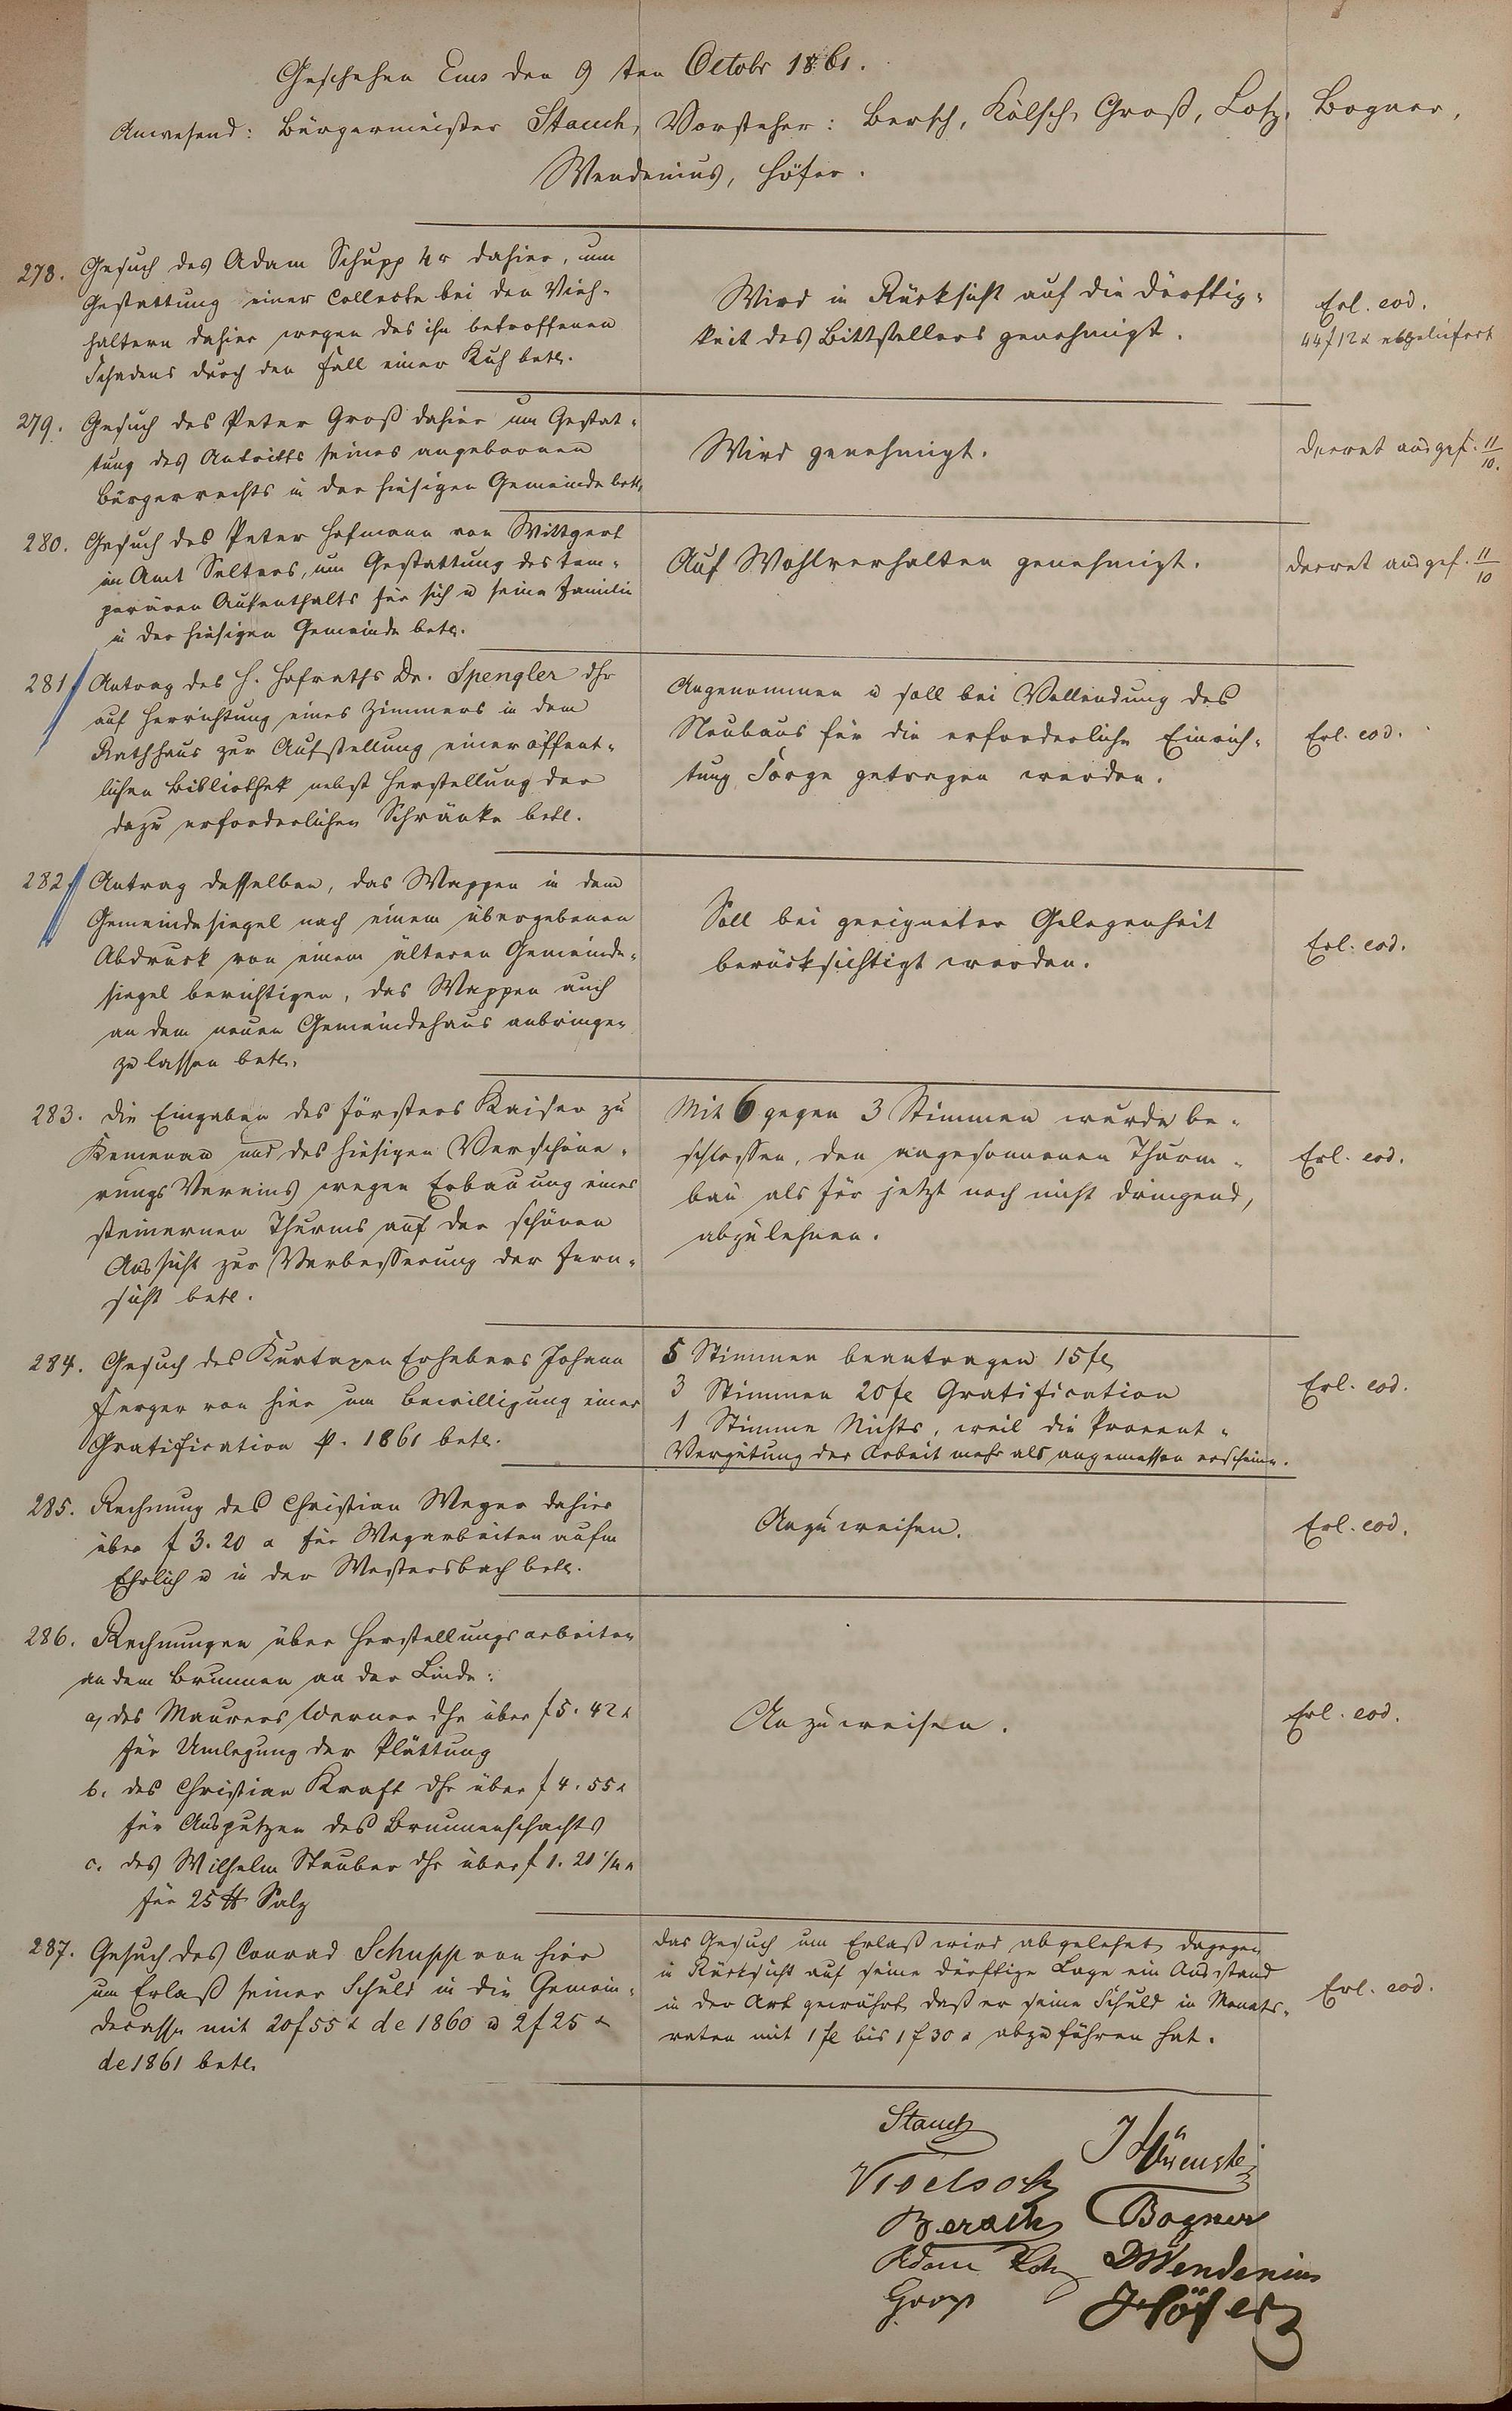 Geschehen Ems den 9ten Octobr 1861.
Anwesend: Bürgermeister Stauch, Vorsteher: Bersch, Kölsch, Groß, Lotz, Bogner,
Wendenius, Höfer.
278. Gesuch des Adam Schupp 4r dahier, um
Gestattung einer Collecte bei den Vieh-
haltern dahier wegen des ihn betroffenen
Schadens durch den Fall einer Kuh betr.
Wird in Rücksicht auf die Dürftig-
keit des Bittstellers genehmigt.
Erl. eod.
44 f 12 x abgeliefert
279. Gesuch des Peter Groß dahier um Gestat-
tung des Antritts seines angebornen
Bürgerrechts in der hiesigen Gemeinde betr.
Wird genehmigt.
Decret ausgef. 11/10.
280. Gesuch des Peter Hofmann von Wittgert
im Amt Selters, um Gestattung des tem-
porären Aufenthalts für sich u seine Familie
in der hiesigen Gemeinde betr.
Auf Wohlverhalten genehmigt.
Decret ausgef. 11/10
281. Antrag des H. Hofraths Dr. Spengler dhr
auf Herrichtung eines Zimmers in dem
Rathhaus zur Aufstellung einer öffent-
lichen Bibliothek nebst Herstellung der
dazu erforderlichen Schränke betr.
Angenommen u soll bei Vollendung des
Neubaus für die erforderliche Einrich-
tung Sorge getragen werden.
Erl. eod.
282. Antrag desselben, das Wappen in dem
Gemeindesiegel nach einem übergebenen
Abdruck von einem älteren Gemeinde-
siegel berichtigen, das Wappen auch
an dem neuen Gemeindehaus anbringen
zu lassen betr.
Soll bei geeigneter Gelegenheit
berücksichtigt werden.
Erl. eod.
283. Die Eingaben des Försters Kaiser zu
Kemenau und des hiesigen Verschöne-
rungs Vereins wegen Erbauung eines
steinernen Thurms auf der schönen
Aussicht zur Verbesserung der Fern-
sicht betr.
Mit 6 gegen 3 Stimmen wurde be-
schlossen, den angesonnenen Thurm-
bau als für jetzt noch nicht dringend,
abzulehnen.
Erl. eod.
284. Gesuch des Kurtaxen Erhebers Johann
Ferger von hier um Bewilligung einer
Gratification p. 1861 betr.
5 Stimmen beantragen 15 fl
3 Stimmen 20 fl Gratification
1 Stimme Nichts, weil die Procent-
Vergütung der Arbeit mehr als angemessen erscheine.
Erl. eod.
285. Rechnung des Christian Weyer dahier
über f 3. 20 x für Wegarbeiten aufm
Ehrlich u in der Westersbach betr.
Anzuweisen.
Erl. eod.
286. Rechnungen über Herstellungsarbeiten
an dem Brunnen an der Linde:
a, des Maurers Werner dhr über f 5. 42 x
für Umlegung der Plättung
b. des Christian Kraft dhr über f 4. 55 x
für Ausputzen des Brunnenschachts
c. des Wilhelm Stauber dhr über f 1. 21 1/4 x
für 25 ℔ Salz
Anzuweisen.
Erl. eod.
287. Gesuch des Conrad Schupp von hier
um Erlaß seiner Schuld in die Gemein-
decasse mit 20 f 55 x de 1860 u 2 f 25 x
de 1861 betr.
Das Gesuch um Erlaß wird abgelehnt, dagegen
in Rücksicht auf seine dürftige Lage ein Ausstand
in der Art gewährt, daß er seine Schuld in Monats-
raten mit 1 fl bis 1 f 30 x abzuführen hat.
Erl. eod.
Stauch
Bersch
Bogner
Adam Lotz
DWendenius
Groß
Höfer